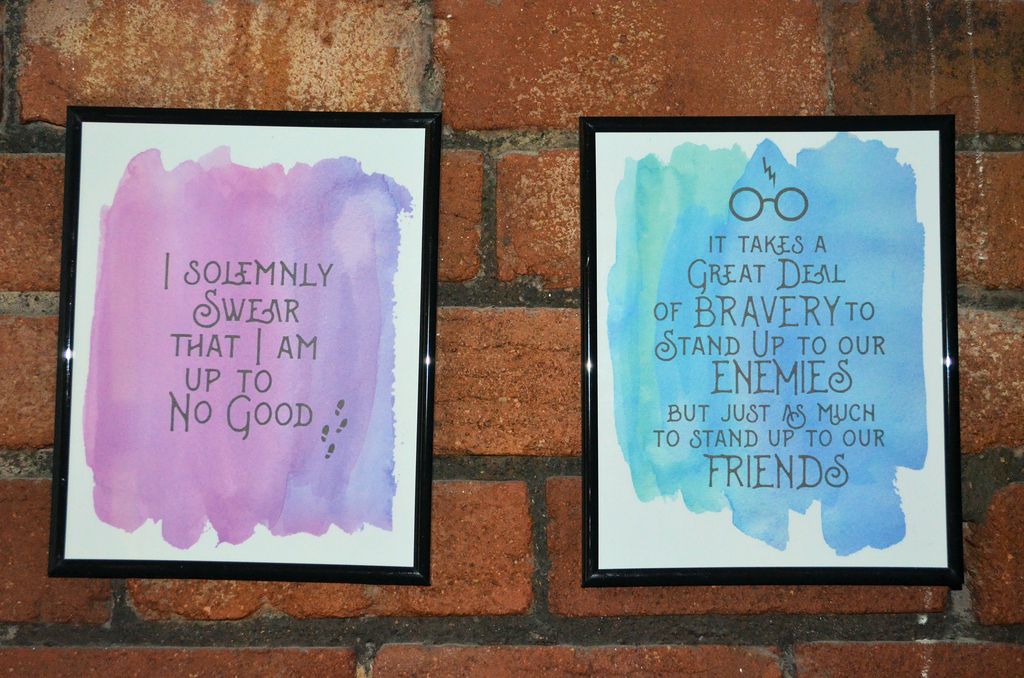 I SOLEMNLY
SWEAR
THAT I AM
UP TO
NO GOOD
IT TAKES A
GREAT DEAL
OF BRAVERY TO
STAND UP TO OUR
ENEMIES
BUT JUST AS MUCH
TO STAND UP TO OUR
FRIENDS